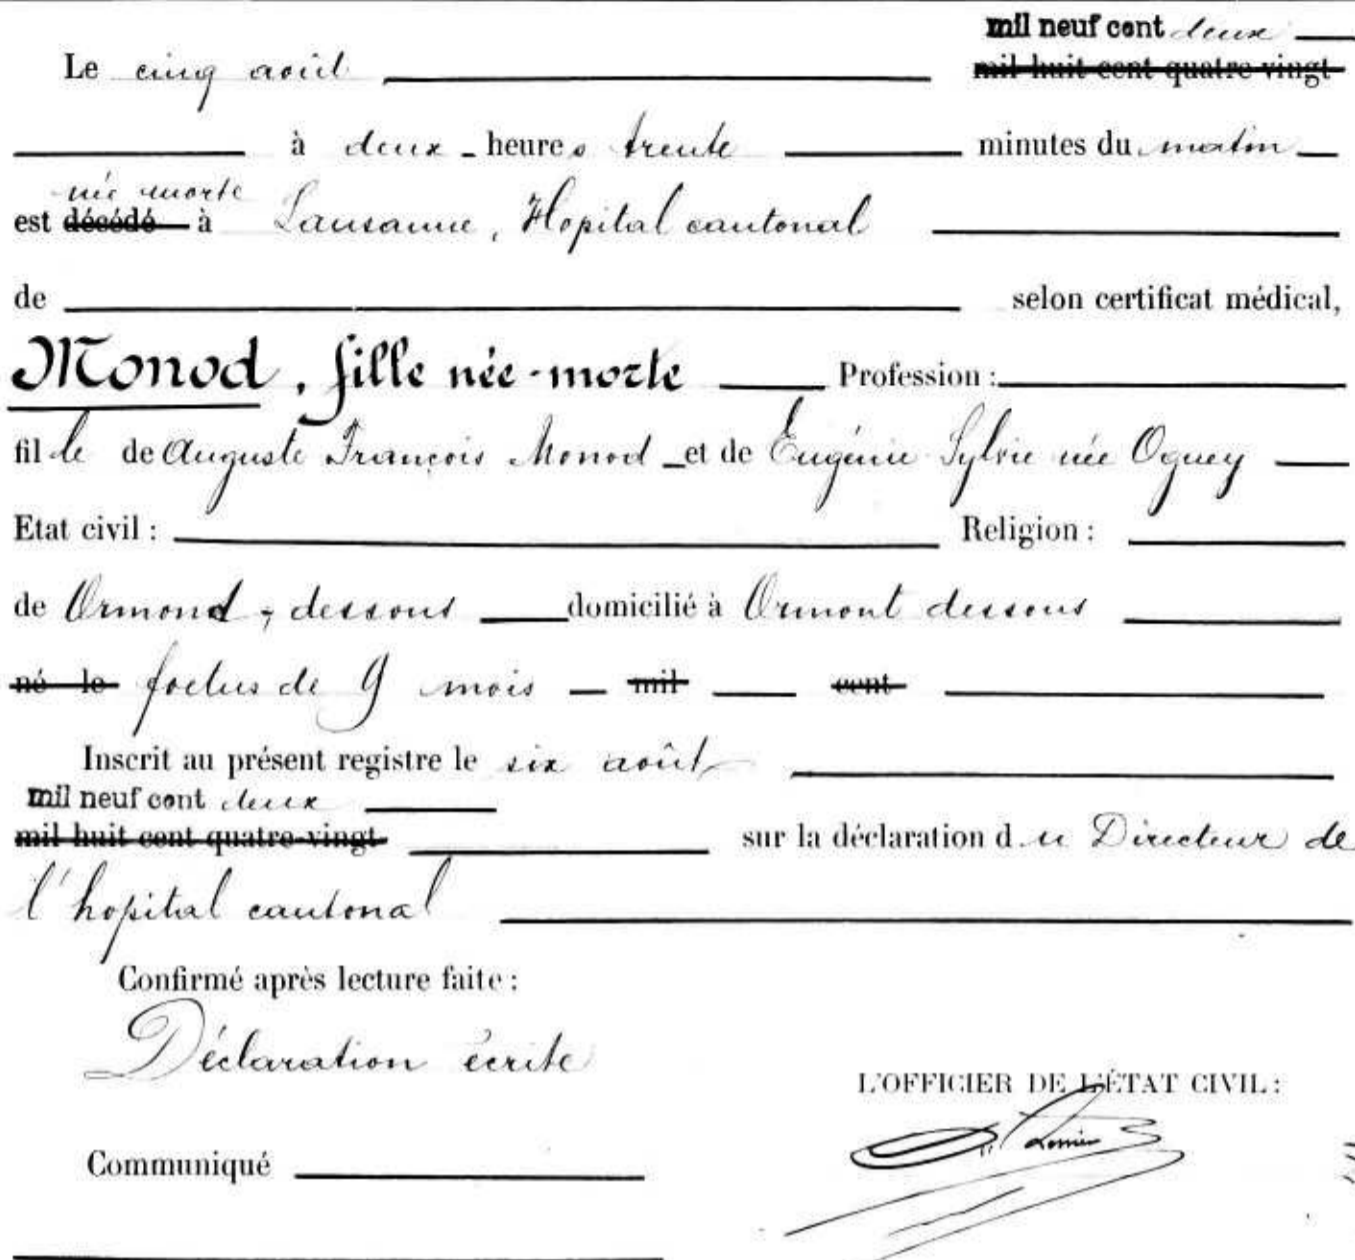 mil neuf cent deux
Le cinq août mil huit cent quatre-vingt
à deux heures trente minutes du matin
née morte
est décédé à Lausanne, Hopital cantonal
de selon certificat médical,
Monod, fille née-morte Profession :
fille de Auguste François Monod et de Eugénie Sylvie née Oguey
Etat civil : Religion :
de Ormond-dessous domicilié à Ormont dessous
né le foetus de 9 mois mil cent
Inscrit au présent registre le six août
mil neuf cent deux
mil huit cent quatre-vingt sur la déclaration du Directeur de
l'hopital cantonal
Confirmé après lecture faite :
Déclaration écrite
L'OFFICIER DE L'ÉTAT CIVIL :
Communiqué